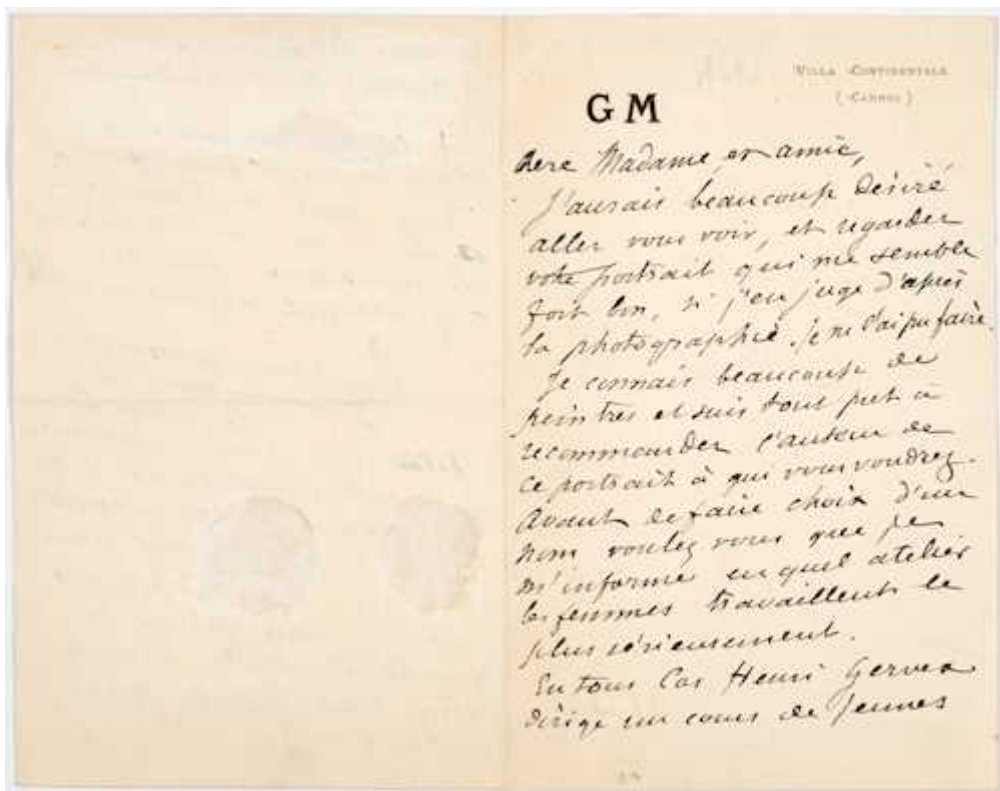 VILLA CONTINENTALE
(CANNES)
GM
chere Madame et amie,
J'aurais beaucoup désiré
aller vous voir, et regarder
votre portrait qui me semble
fort bon, si j'en juge d'après
la photographie. Je ne l'ai pu faire.
Je connais beaucoup de
peintres et suis tout pret à
recommander l'auteur de
ce portrait à qui vous voudrez.
Avant de faire choix d'un
nom voulez vous que je
m'informe en quel atelier
les femmes travaillent le
plus sérieusement.
En tous Cas Henri Gervex
dirige un cours de Jeunes